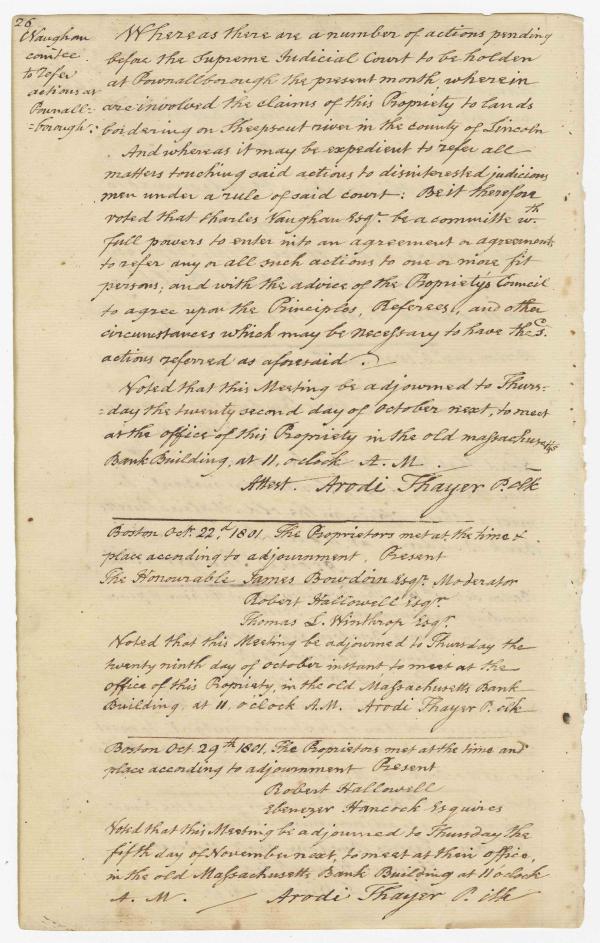 26
Vaughan
comtee
to refer
actions at
Pownall=
=borough.
Whereas there are a number of actions pending
before the Supreme Judicial Court to be holden
at Pownallborough the present month, wherein
are involved the claims of this Propriety to lands
bordering on Sheepscut river in the county of Lincoln
And whereas it may be expedient to refer all
matters touching said actions to disinterested judicious
men under a rule of said court: Be it therefore
voted that Charles Vaughan Esqr. be a committe wth.
full powers to enter into an agreement or agreements
to refer any or all such actions to one or more fit
persons; and with the advice of the Propriety's Council
to agree upon the Principles, Referees, and other
circumstances which may be necessary to have the sd.
actions referred as aforesaid.
Voted that this Meeting be adjourned to Thurs-
=day the twenty second day of October next, to meet
at the office of this Propriety in the old massachusetts
Bank Building, at 11, oclock A. M.
Attest. Arodi Thayer P. Clk
Boston Octr. 22d. 1801. The Proprietors met at the time &
place according to adjournment. Present
The Honourable James Bowdoin Esqr. Moderator
Robert Hallowell Esqr.
Thomas L. Winthrop Esqr.
Voted that this Meeting be adjourned to Thursday the
twenty ninth day of October instant to meet at the
office of this Propriety, in the old Massachusetts Bank
Building, at 11, o'clock A.M. Arodi Thayer P. Clk
Boston Oct. 29th. 1801. The Proprietors met at the time and
place according to adjournment Present
Robert Hallowell
Ebenezer Hancock Esquires
Voted that this Meeting be adjourned to Thursday the
fifth day of November next, to meet at their office,
in the old Massachusetts Bank Building at 11 oclock
A. M. Arodi Thayer P. Clk